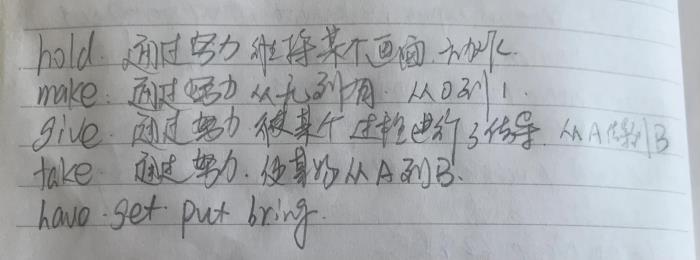 hold. 通过努力 维持某个画面
make. 通过努力 从无到有. 从0到1.
give. 通过努力. 使某个过程进行了传导. 从A传到B
take. 通过努力. 使某物从A到B.
have. get. put bring.